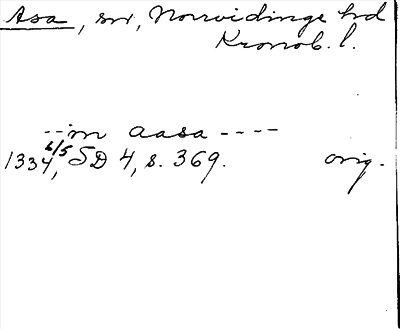 Asa, sn, Norrvidinge hd
Kronob. l.
--in aasa ----
1334 6/5, SD 4, s. 369. orig.